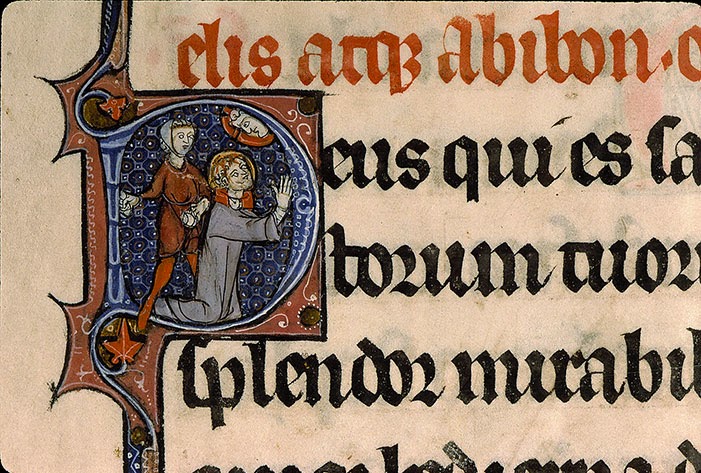 elis atqꝫ abibon· o
Deus qui es sa
ctorum tuor
splendor mirabil